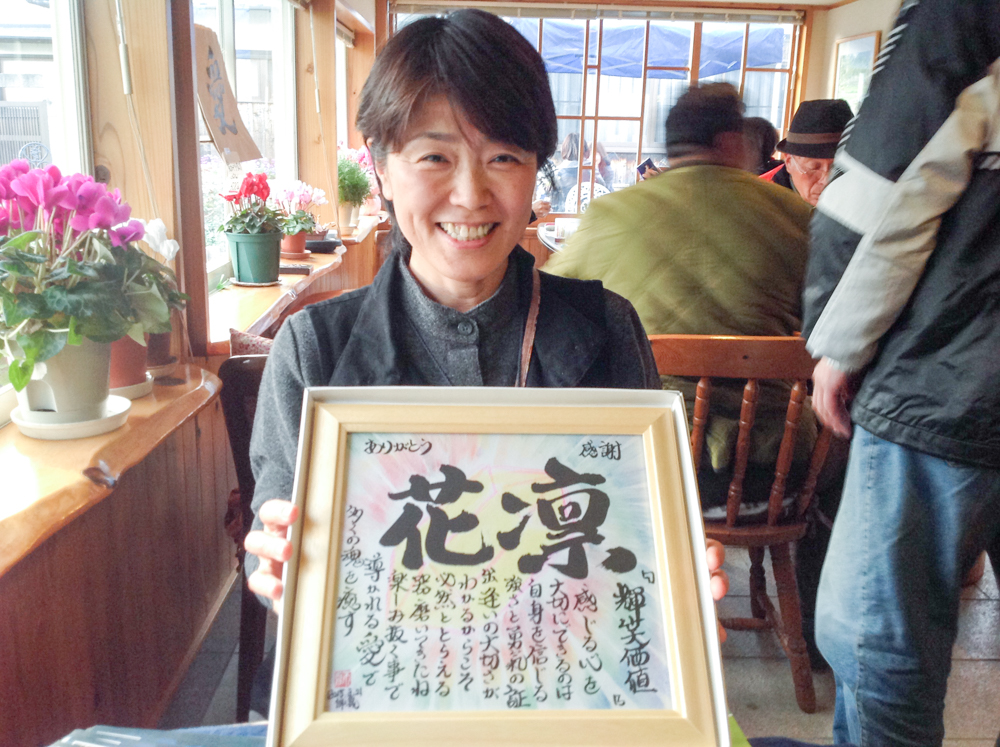 感謝
ありがとう
凛花
「輝生大価値」
感じる心を
大切にできるのは
自身を信じる
強さと勇気の証
出逢いの大切さが
わかるからこそ
必然ととらえる
器磨いてかさね
楽しみ抜く事で
導かれる愛で
多くの魂を癒す